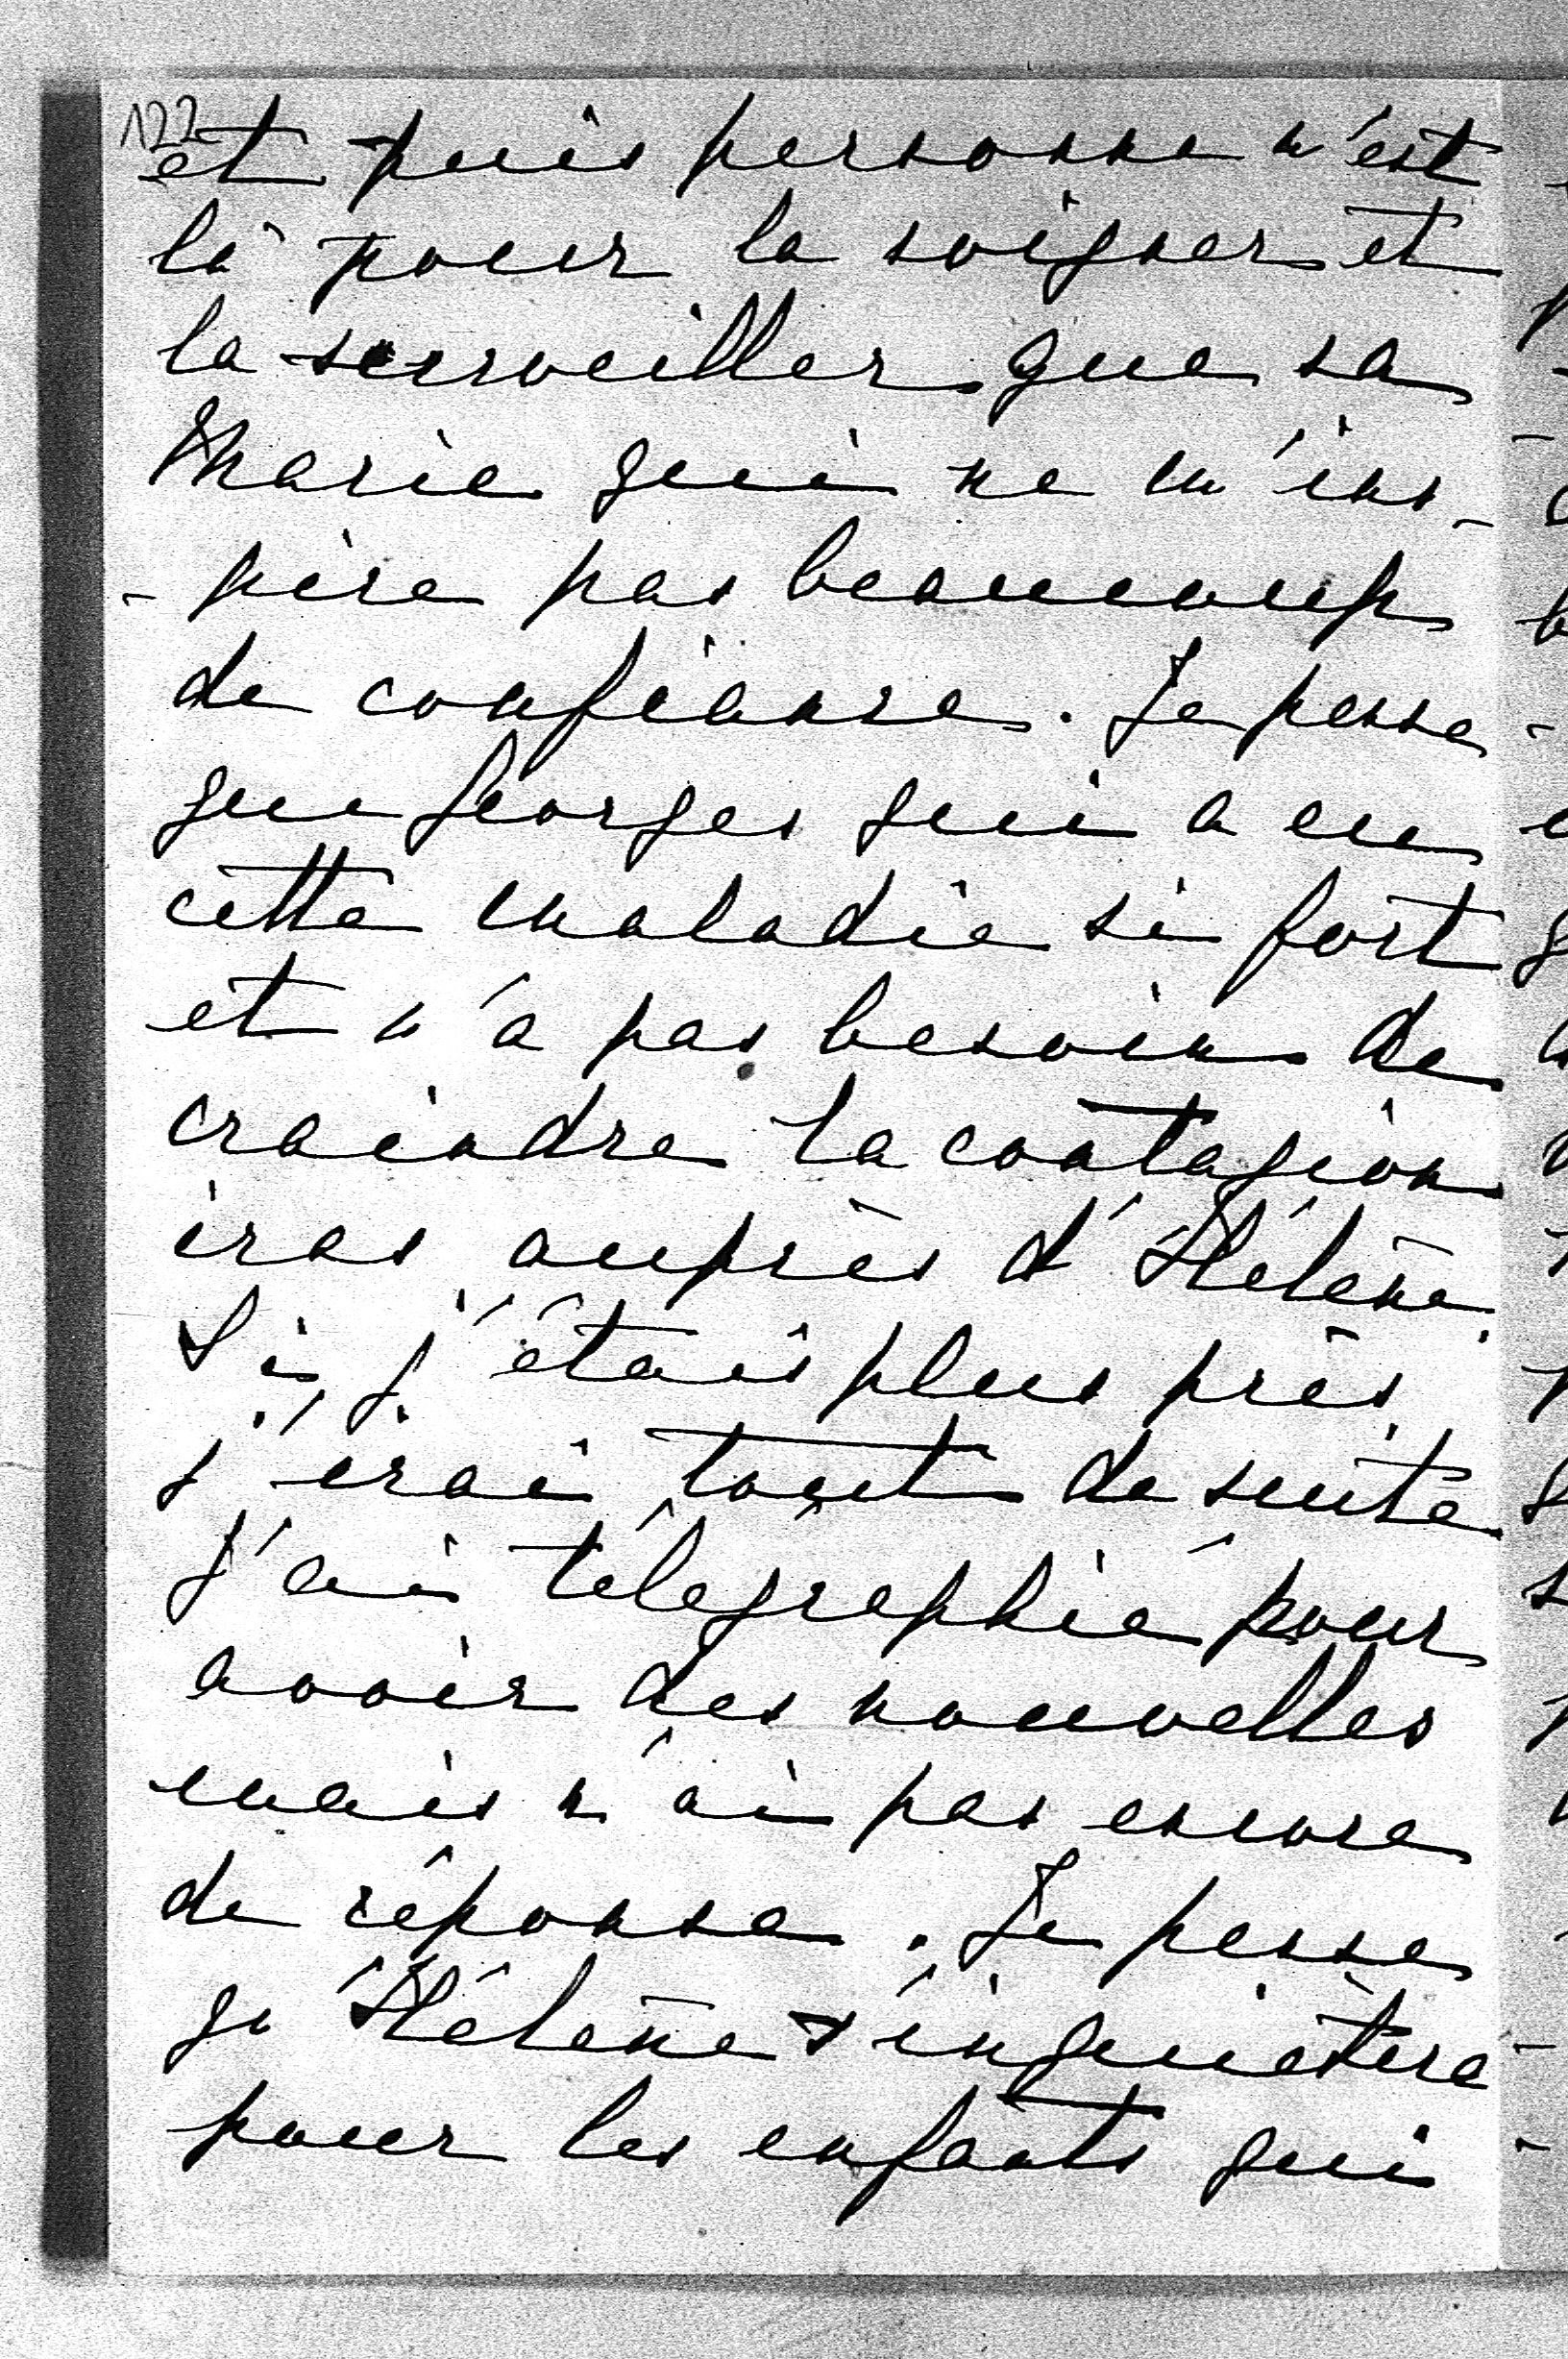 122
et puis personne n'est
là pour la soigner et
la surveiller que sa
Marie qui ne m'ins-
-pire pas beaucoup
de confiance. Je pense
que Georges qui a eu
cette maladie si fort
et n'a pas besoin de
craindre la contagion
iras auprès d'Hélène.
Si j'étais plus près
j'irai tout de suite.
J'ai télégraphié pour
avoir des nouvelles
mais n'ai pas encore
de réponse. Je pense
qu'Hélène s'inquiètera
pour les enfants qui